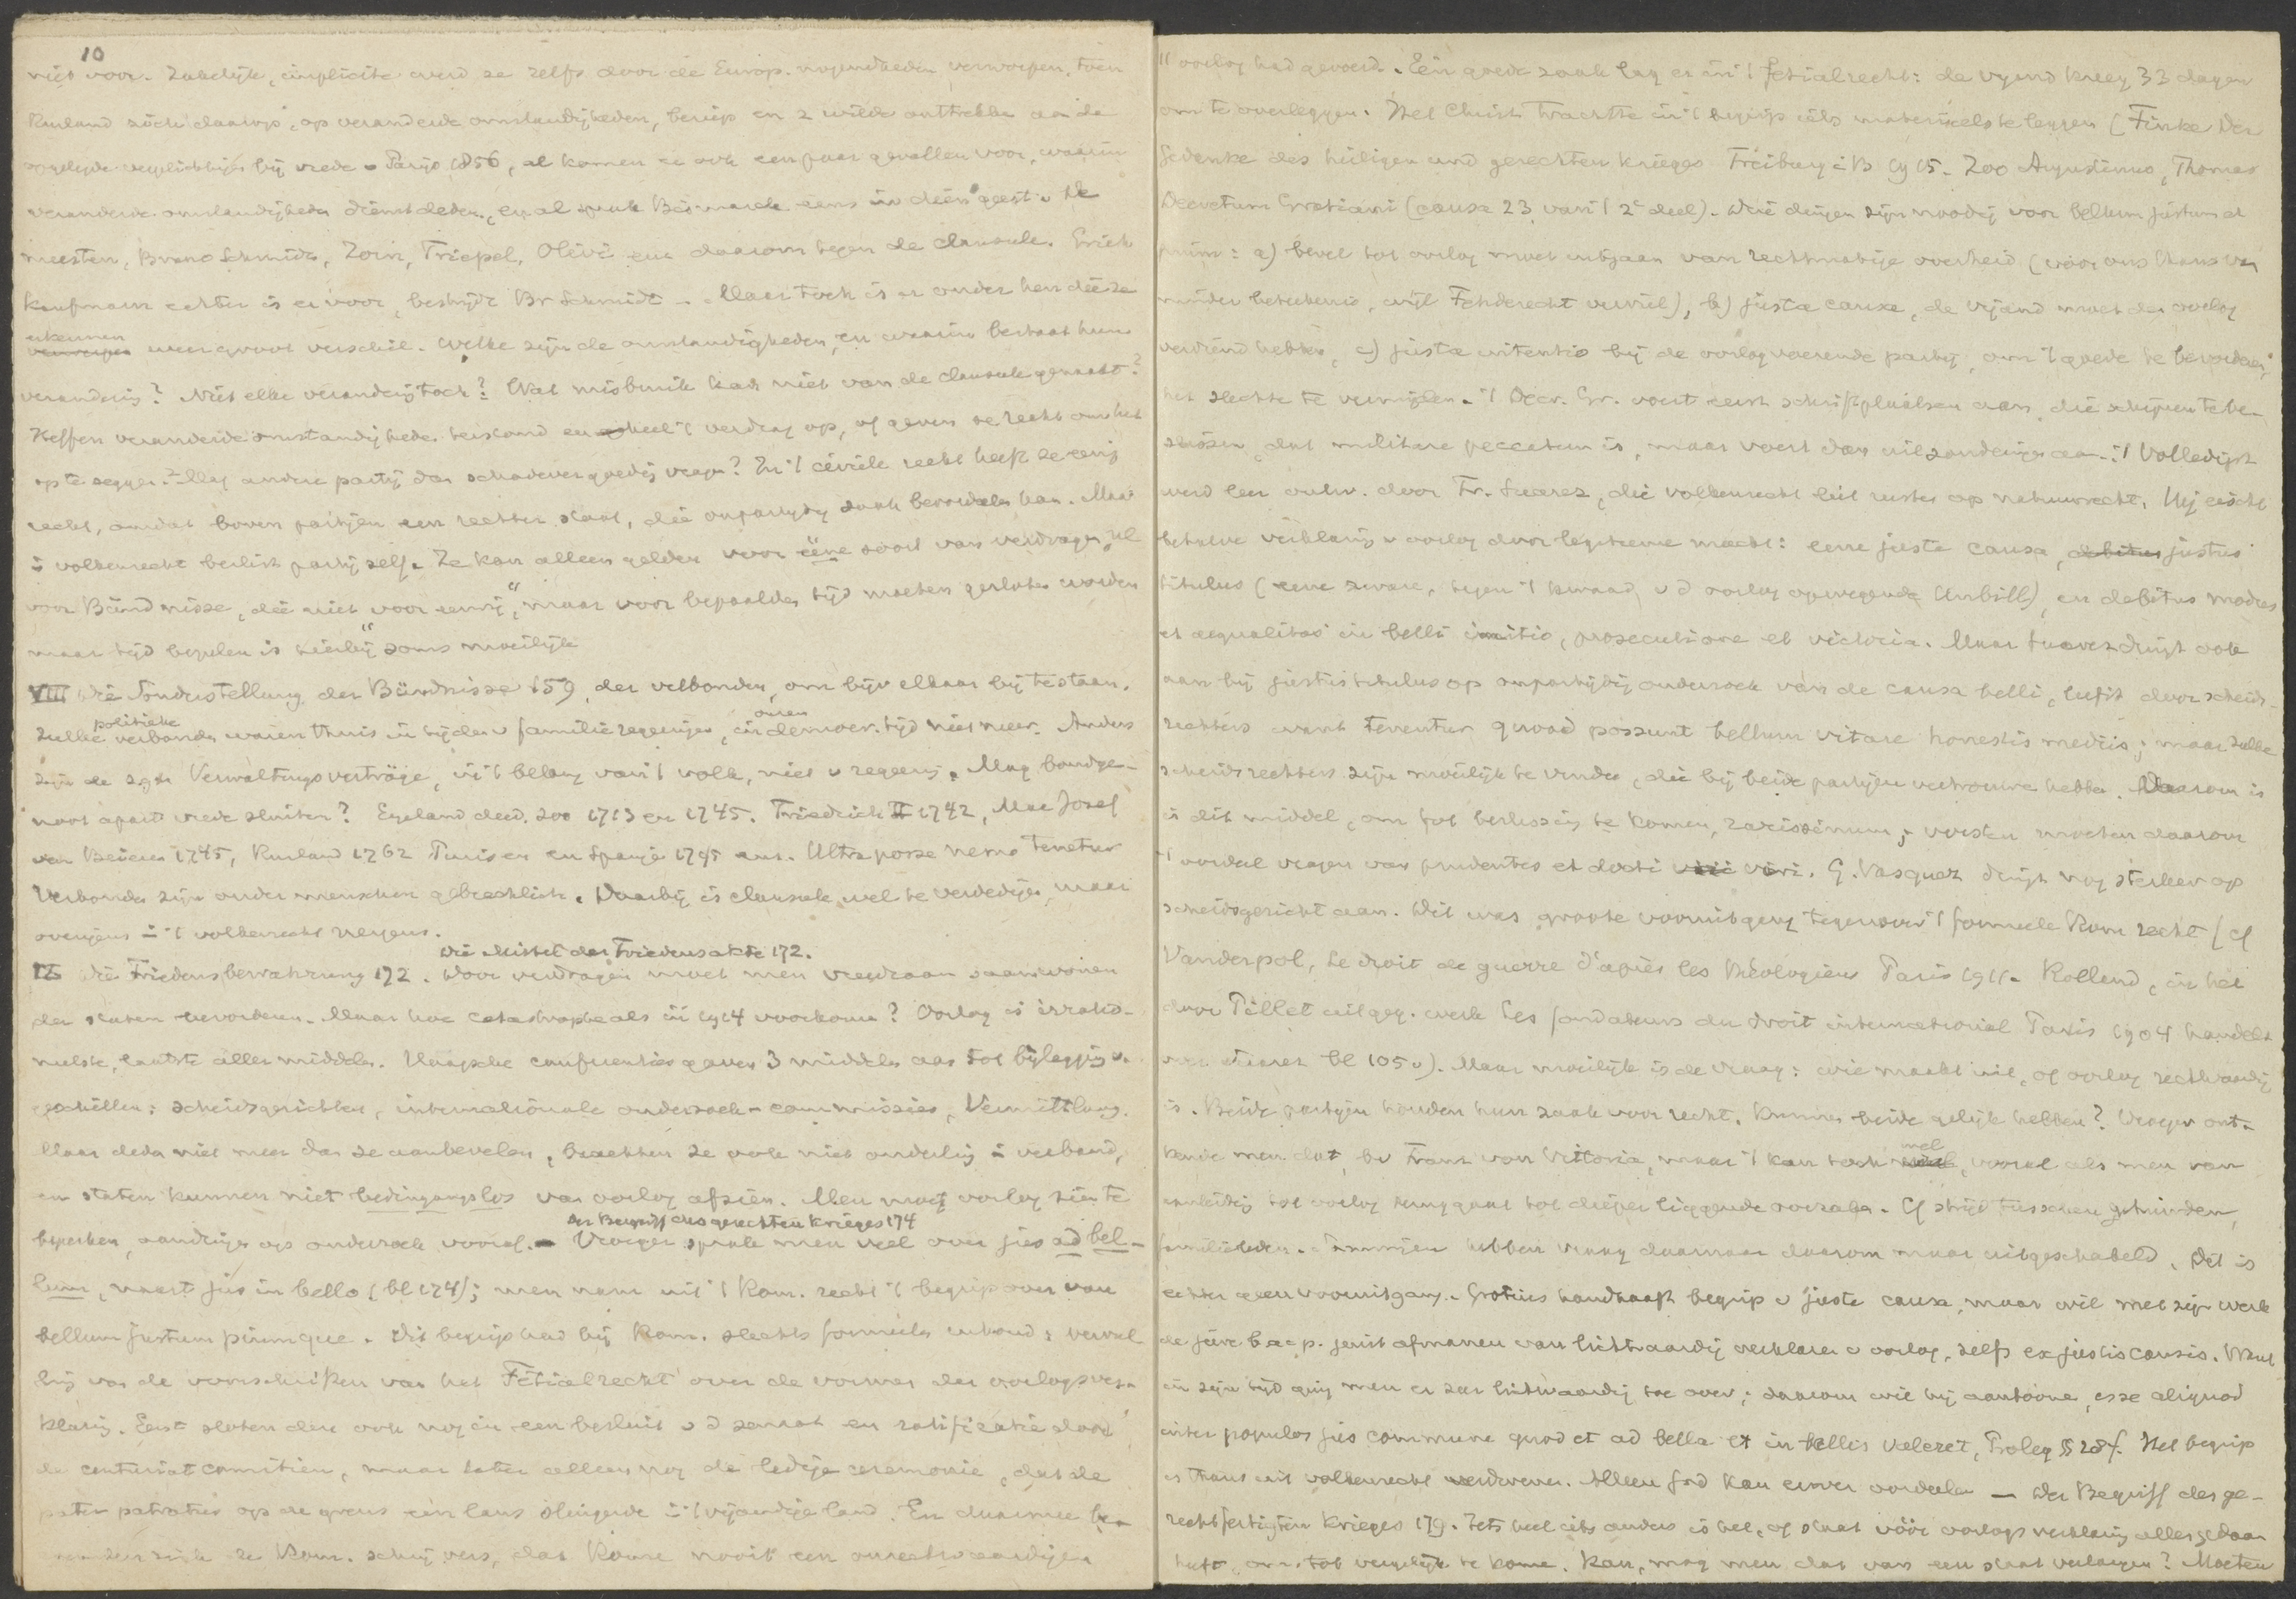 10
niet voor. Zakelijk, implicite werd ze zelfs door de Europ. mogendheden verworpen, toen
Rusland zich daarop, op veranderde omstandigheden, beriep en z. wilde onttrekken aan de
opgelegde verplichtingen bij vrede v Parijs 1856, al komen er ook een paar gevallen voor, waarin
veranderde omstandigheden dienst deden, en al sprak Bismarck eens in dien geest. De
meesten, Bruno Schmidt, Zorn, Triepel, Olivi enz daarom tegen de clausule. Erich
Kaufmann echter is er voor, bestrijdt Br Schmidt. Maar toch is er onder hen die ze
erkennen
weer groot verschil. Welke zijn de omstandigheden, en waarin bestaat hun
verandering? Niet elke verandering toch? Wat misbruik had niet van de clausule gemaakt?
Heffen veranderde omstandigheden terstond en geheel 't verdrag op, of geven ze recht om het
op te zeggen? Mag andere partij dan schadevergoeding vragen? In 't civiele recht heeft ze eenig
recht, omdat boven partijen een rechter staat, die onpartijdig zaak beoordeelen kan. Maar
i volkenrecht beslist partij zelf. Ze kan alleen gelden voor ééne soort van verdragen, nl
voor Bündnisse, die niet voor eeuwig, maar voor bepaalden tijd moeten gesloten worden
maar tijd bepalen is hierbij soms moeilijk
VIII Die Sonderstellung der Bündnisse 159, der verbonden, om bijv elkaar bij te staan.
politieke onzen
Zulke verbonden waren thuis in tijden v familieregeeringen, in democr. tijd niet meer. Anders
zijn de zgn Verwaltungsverträge, in 't belang van 't volk, niet v regeering. Mag bondge-
noot apart vrede sluiten? Engeland deed zoo 1713 en 1745. Friedrich II 1742, Max Josef
van Beieren 1745, Rusland 1762 Pruisen en Spanje 1795 enz. Ultra posse nemo tenetur
Verbonden zijn onder menschen gebrechlich. Daarbij is clausule wel te verdedigen, maar
overigens i 't volkenrecht nergens.
Die Mittel der Friedensakte 172.
IX Die Friedensbewahrung 172. Door verdragen moet men vreedzaam saamwonen
der staten bevorderen. Maar hoe catastrophe als in 1914 voorkomen? Oorlog is irratio-
neelste, laatste aller middelen. Haagsche conferenties gaven 3 middelen aan tot bijlegging v.
geschillen: scheidsgerichten, internationale onderzoek-commissies, Vermittlung.
Maar deden niet meer dan ze aanbevelen, brachten ze ook niet onderling i verband,
en staten kunnen niet bedingungslos van oorlog afzien. Men moet oorlog zien te
Der Begriff des gerechten Krieges 174
beperken, aandringen op onderzoek vooraf. – Vroeger sprak men veel over jus ad bel-
lum, naast jus in bello (bl 174); men nam uit 't Rom. recht 't begrip over van
bellum justum piumque. Dit begrip had bij Rom. slechts formeelen inhoud: vervul
ling van de voorschriften van het Fetialrecht over de vormen der oorlogsver-
klaring. Eerst sloten deze ook nog in een besluit v d senaat en ratificatie door
de centuriatcomitien, maar later alleen nog de ledige ceremonie, dat de
pater patratus op de grens een lans slingerde i 't vijandige land. En daarmee be-
de Rom. schrijvers, dat Rome nooit een onrechtvaardigen
11 oorlog had gevoerd. Eén goede zaak lag er in 't fetialrecht: de vijand kreeg 33 dagen
om te overleggen. Het Christ. trachtte in 't begrip iets materieels te leggen (Finke Der
Gedanke des heiligen und gerechten Krieges Freiburg i B 1915. Zoo Augustinus, Thomas
Decretum Gratiani (causa 23 van 't 2e deel). Drie dingen zijn noodig voor bellum justum et
pium: a) bevel tot oorlog moet uitgaan van rechtmatige overheid (voor ons thans van
minder beteekenis, wijl Fehderecht verviel), b) justa causa, de vijand moet den oorlog
verdiend hebben, c) justa intentio bij de oorlogvoerende partij, om 't goede te bevorderen,
het slechte te vermijden. 't Decr. Gr. voert eerst schriftplaatsen aan, die schijnen te be-
slissen, dat militare peccatum is, maar voert dan uitzonderingen aan. 't Volledigst
werd leer ontw. door Fr. Suarez, die volkenrecht liet rusten op natuurrecht. Hij eischt
behalve verklaring v oorlog door legitieme macht: eene justa causa, justus
titulus (eene zware, tegen 't kwaad v d oorlog opwegende Unbill), en debitus modus
et aequalitas in belli initio, prosecutione et victoria. Maar Suarez dringt ook
aan bij justus titulus op onpartijdig onderzoek van de causa belli, liefst door scheids-
rechters want tenentur quoad possunt bellum vitare honestis mediis; maar zulke
scheidsrechters zijn moeilijk te vinden, die bij beide partijen vertrouwen hebben. Daarom is
is dit middel, om tot beslissing te komen, rarissimum; vorsten moeten daarom
't oordeel vragen van prudentes et docti viri. G. Vasquez dringt nog sterker op
scheidsgericht aan. Dit was groote vooruitgang tegenover 't formeele Rom recht (cf
Vanderpol, Le droit de guerre d'après les théologiens Paris 1911. Rolland, in het
door Pillet uitgeg. werk Les fondateurs du droit international Paris 1904 handelt
over Suarez bl 105 v). Maar moeilijk is de vraag: wie maakt uit, of oorlog rechtvaardig
is. Beide partijen houden hun zaak voor recht. Kunnen beide gelijk hebben? Vroeger ont-
wel
kende men dat, bv Franz von Vittoria, maar 't kan toch, vooral als men van
aanleiding tot oorlog teruggaat tot dieper liggende oorzaken. Cf strijd tusschen gehuwden,
familieleden. Sommigen hebben vraag daarnaar daarom maar uitgeschakeld. Dit is
echter geen vooruitgang. Grotius handhaaft begrip v justa causa, maar wil met zijn werk
de jure b ac p. juist afmanen van lichtvaardig verklaren v oorlog, zelfs ex justis causis. Want
in zijn tijd ging men er zeer lichtvaardig toe over; daarom wil hij aantoonen, esse aliquod
inter populos jus commune quod et ad bella et in bellis valeret, Proleg § 28 f. Het begrip
is thans uit volkenrecht verdwenen. Alleen God kan erover oordeelen – Der Begriff des ge-
rechtfertigten Krieges 179. Iets heel iets anders is het, of staat vóór oorlogsverklaring alles gedaan
heeft, om tot vergelijk te komen. Kan, mag men dat van een staat verlangen? Moeten